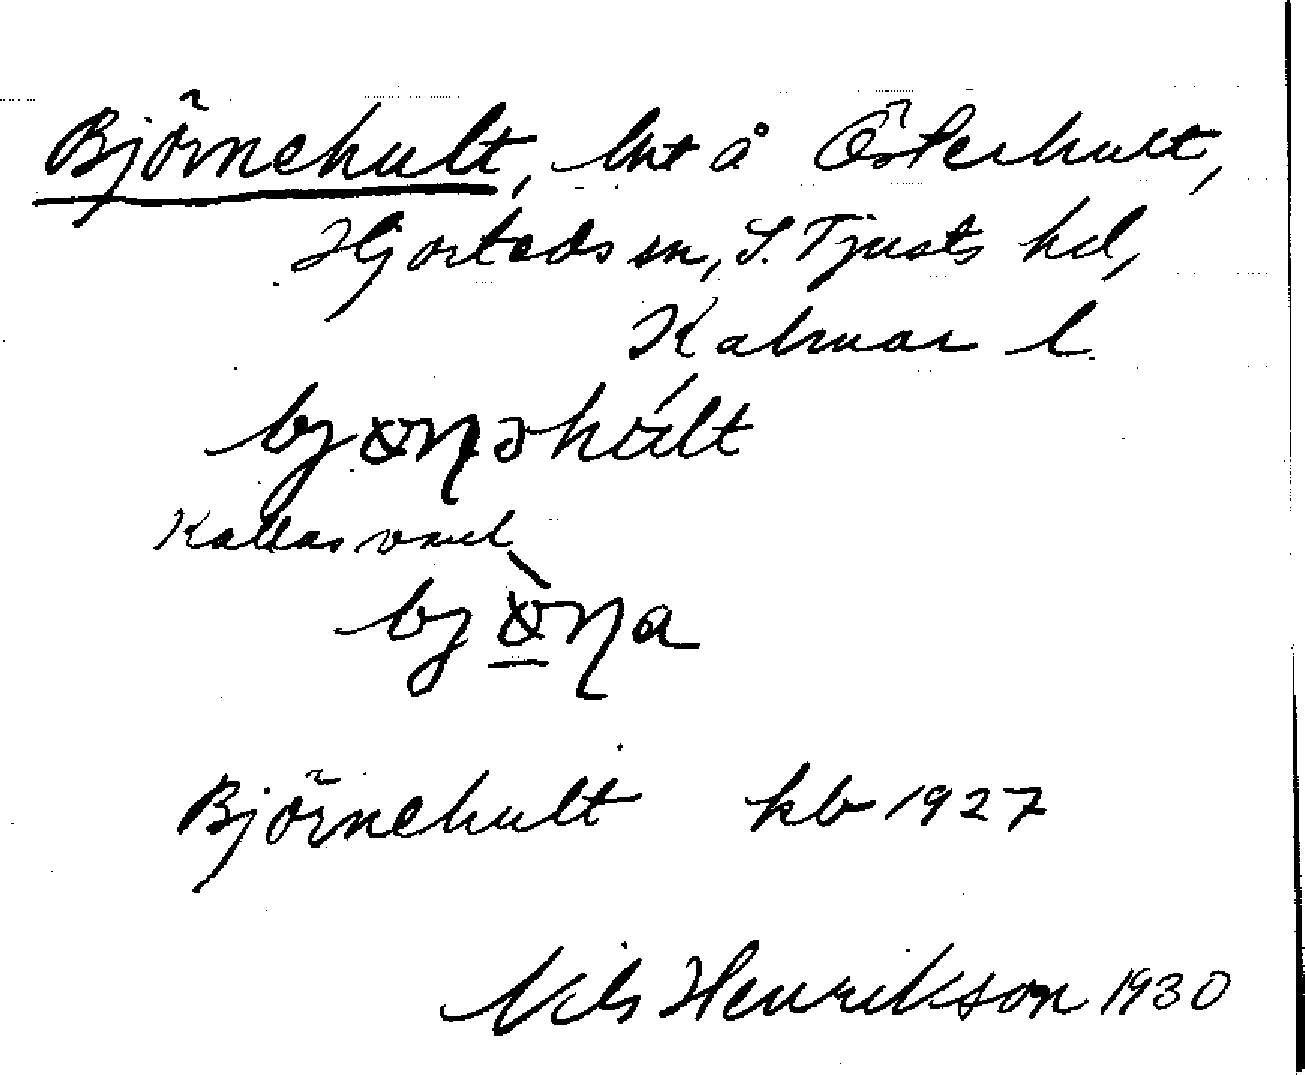 Björnehult, lht å Österhult,
Hjorteds sn, S. Tjusts hd,
Kalmar l.
Kallas vard.
Björnehult kb 1927
Nils Henrikson 1930